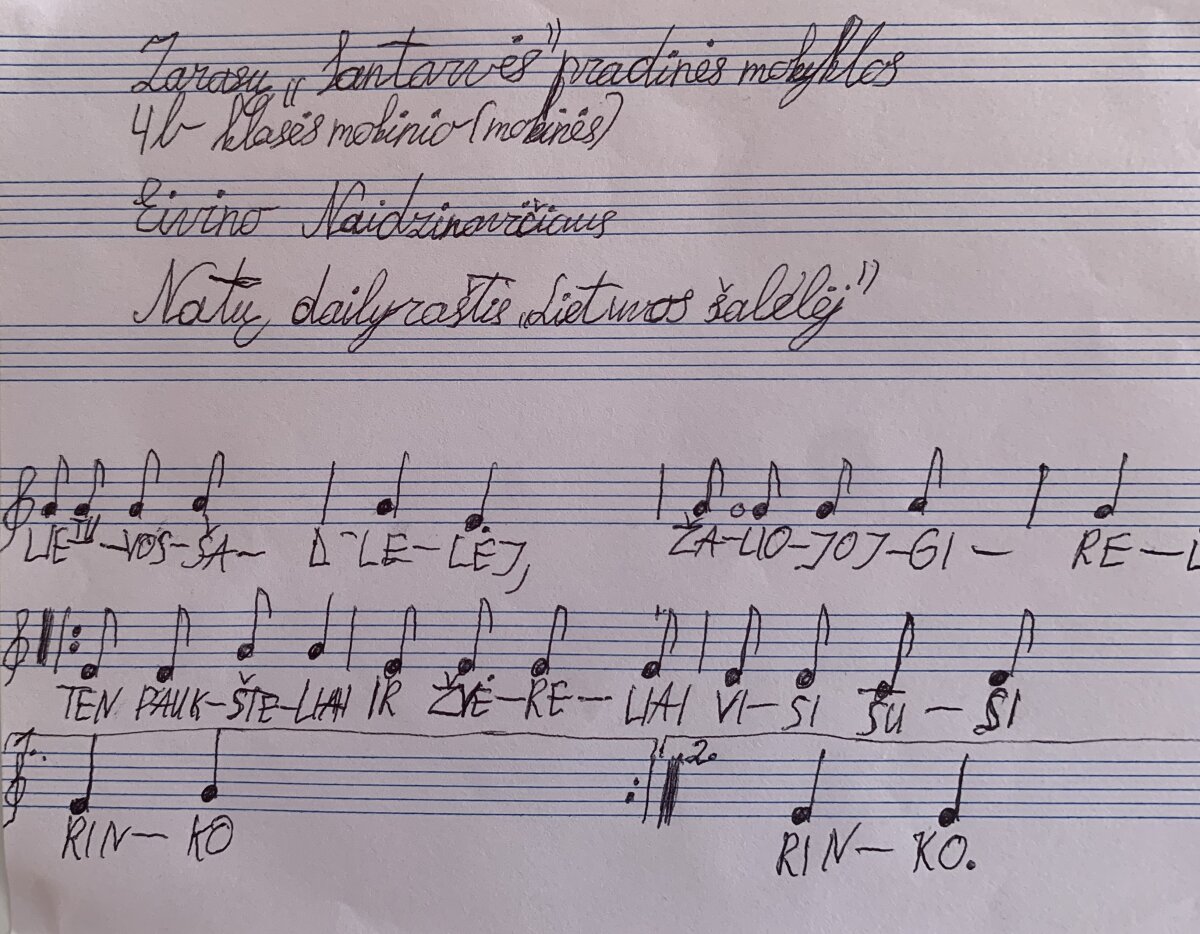 Zarasų „Santarvės” pradinės mokyklos
4b klasės mokinio (mokinės)
Eivino Naidzinavičiaus
Natų dailyraštis „Lietuvos šalėlėj”
LIE-TU-VOS-ŠA- L-LE-LĖJ, ŽA-LIO-JOJ-GI- RE-L
TEN PAUK-ŠTE-LIAI IR ŽVĖ-RE-LIAI VI-SI SU-SI
1. 2.
RIN-KO RIN-KO.